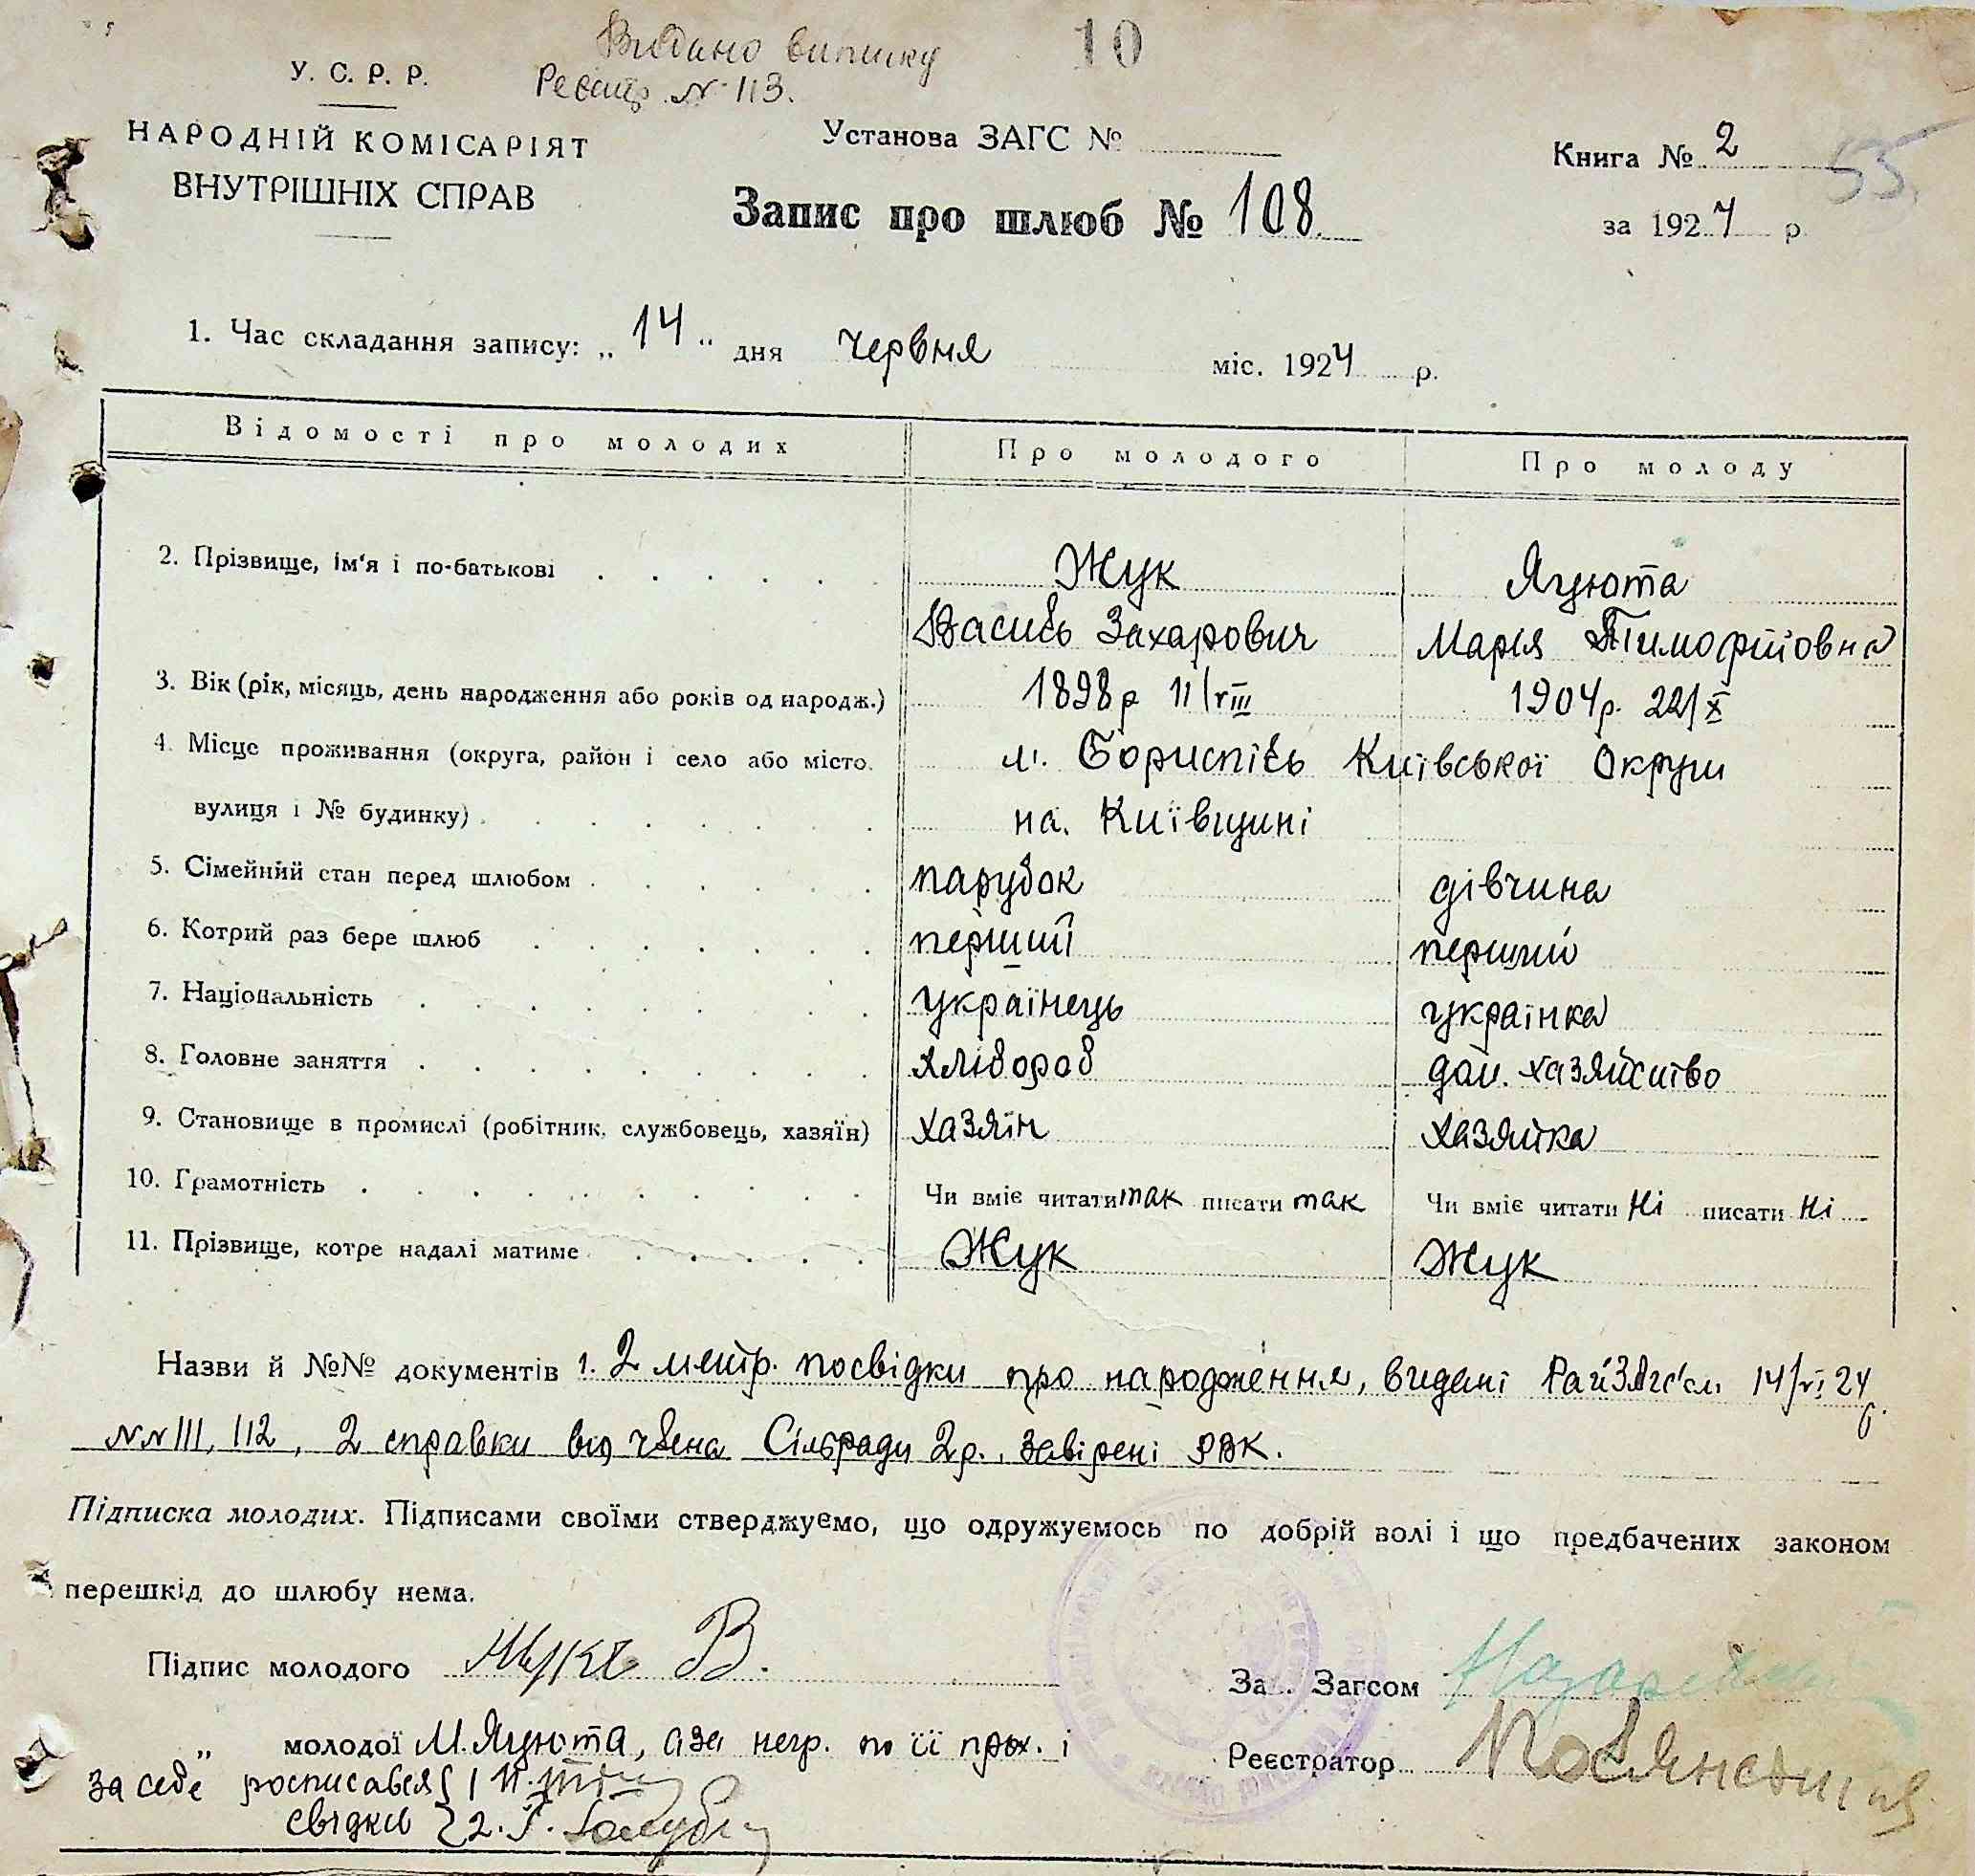 Видано виписку
10
У. С. Р. Р.
Реєстр. № 113.
НАРОДНІЙ КОМІСАРІЯТ
ВНУТРІШНІХ СПРАВ
Установа ЗАГС №
Книга № 2
55
Запис про шлюб № 108.
за 1924 р.
1. Час складання запису: „ 14 " дня червня міс. 1924 р.
Відомості про молодих Про молодого Про молоду
2. Прізвище, ім'я і по-батькові Жук Яцюта
Василь Захарович Марія Тимофійовна
3. Вік (рік, місяць, день народження або років од народж.) 1898 р 11/VIII 1904 р. 22/X
4. Місце проживання (округа, район і село або місто, м. Бориспіль Київської Округи
вулиця і № будинку) на. Київщині
5. Сімейний стан перед шлюбом парубок дівчина
6. Котрий раз бере шлюб перший перший
7. Національність українець українка
8. Головне заняття хлібороб дом. хазяйство
9. Становище в промислі (робітник, службовець, хазяїн) хазяїн хазяйка
10. Грамотність Чи вміє читати так писати так Чи вміє читати Ні писати Ні
11. Прізвище, котре надалі матиме Жук Жук
Назви й №№ документів 1. 2 метр. посвідки про народження, видані РайЗАГС'ом 14/VI 24
№№ 111, 112, 2 справки від члена Сільради 2 р., завірені РВК.
Підписка молодих. Підписами своїми стверджуємо, що одружуємось по добрій волі і що предбачених законом
перешкід до шлюбу нема.
Підпис молодого Жукъ В.
Зав. Загсом
„ молодої М. Яцюта, а за негр. по її прох. і
Реєстратор
за себе росписався 1
свідки 2. Г. Голуб